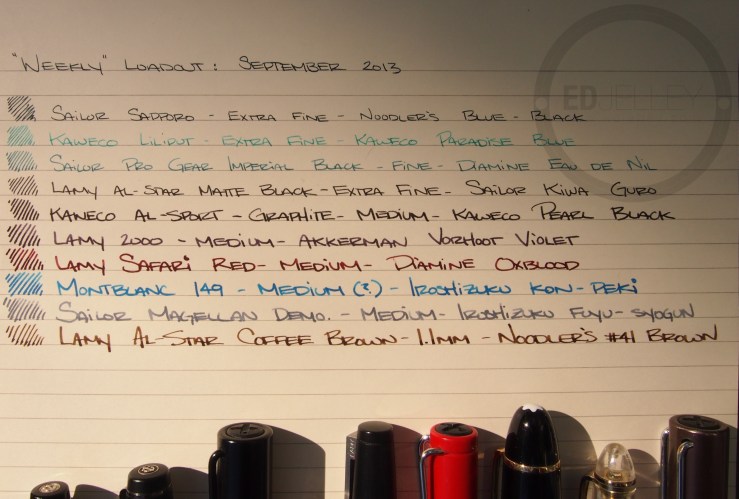 "Weekly" Loadout: September 2013
EDJELLEY
Sailor Sapporo - Extra Fine - Noodler's Blue-Black
Kaweco Liliput - Extra Fine - Kaweco Paradise Blue
Sailor Pro Gear Imperial Black - Fine - Diamine Eau de Nil
Lamy Al-Star Matte Black - Extra Fine - Sailor Kiwa Guro
Kaweco Al-Sport - Graphite - Medium - Kaweco Pearl Black
Lamy 2000 - Medium - Akkerman Voorhout Violet
Lamy Safari Red - Medium - Diamine Oxblood
Montblanc 149 - Medium (?) - Iroshizuku Kon-Peki
Sailor Magellan Demo. - Medium - Iroshizuku Fuyu-Syogun
Lamy Al-Star Coffee Brown - 1.1mm - Noodler's #41 Brown